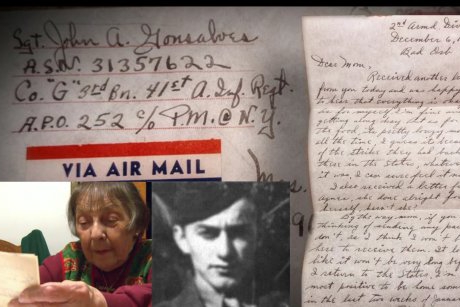 Sgt. John A. Gonsalves
A.S.N. 31357622
Co. "G" 3rd Bn. 41st A. Inf. Regt.
A.P.O. 252 c/o P.M. @ N.Y.
VIA AIR MAIL
2nd Armd. Div
December 6,
Bad Orb
Dear Mom,
Received another
from you today and was happy
to hear that everything is
as for myself I'm fine and
getting along
the food. Its pretty
all the time, I guess its because
of the strike they had
there in the States, whatever
it was, I can sure feel it
I also received a letter
Agnes, she
herself,
By the way mom, if you
thinking of sending any
don't as I think I won't
here to receive them. It
like it won't be very long
I return to the States, I'm
most positive to be home
in the last two weeks of